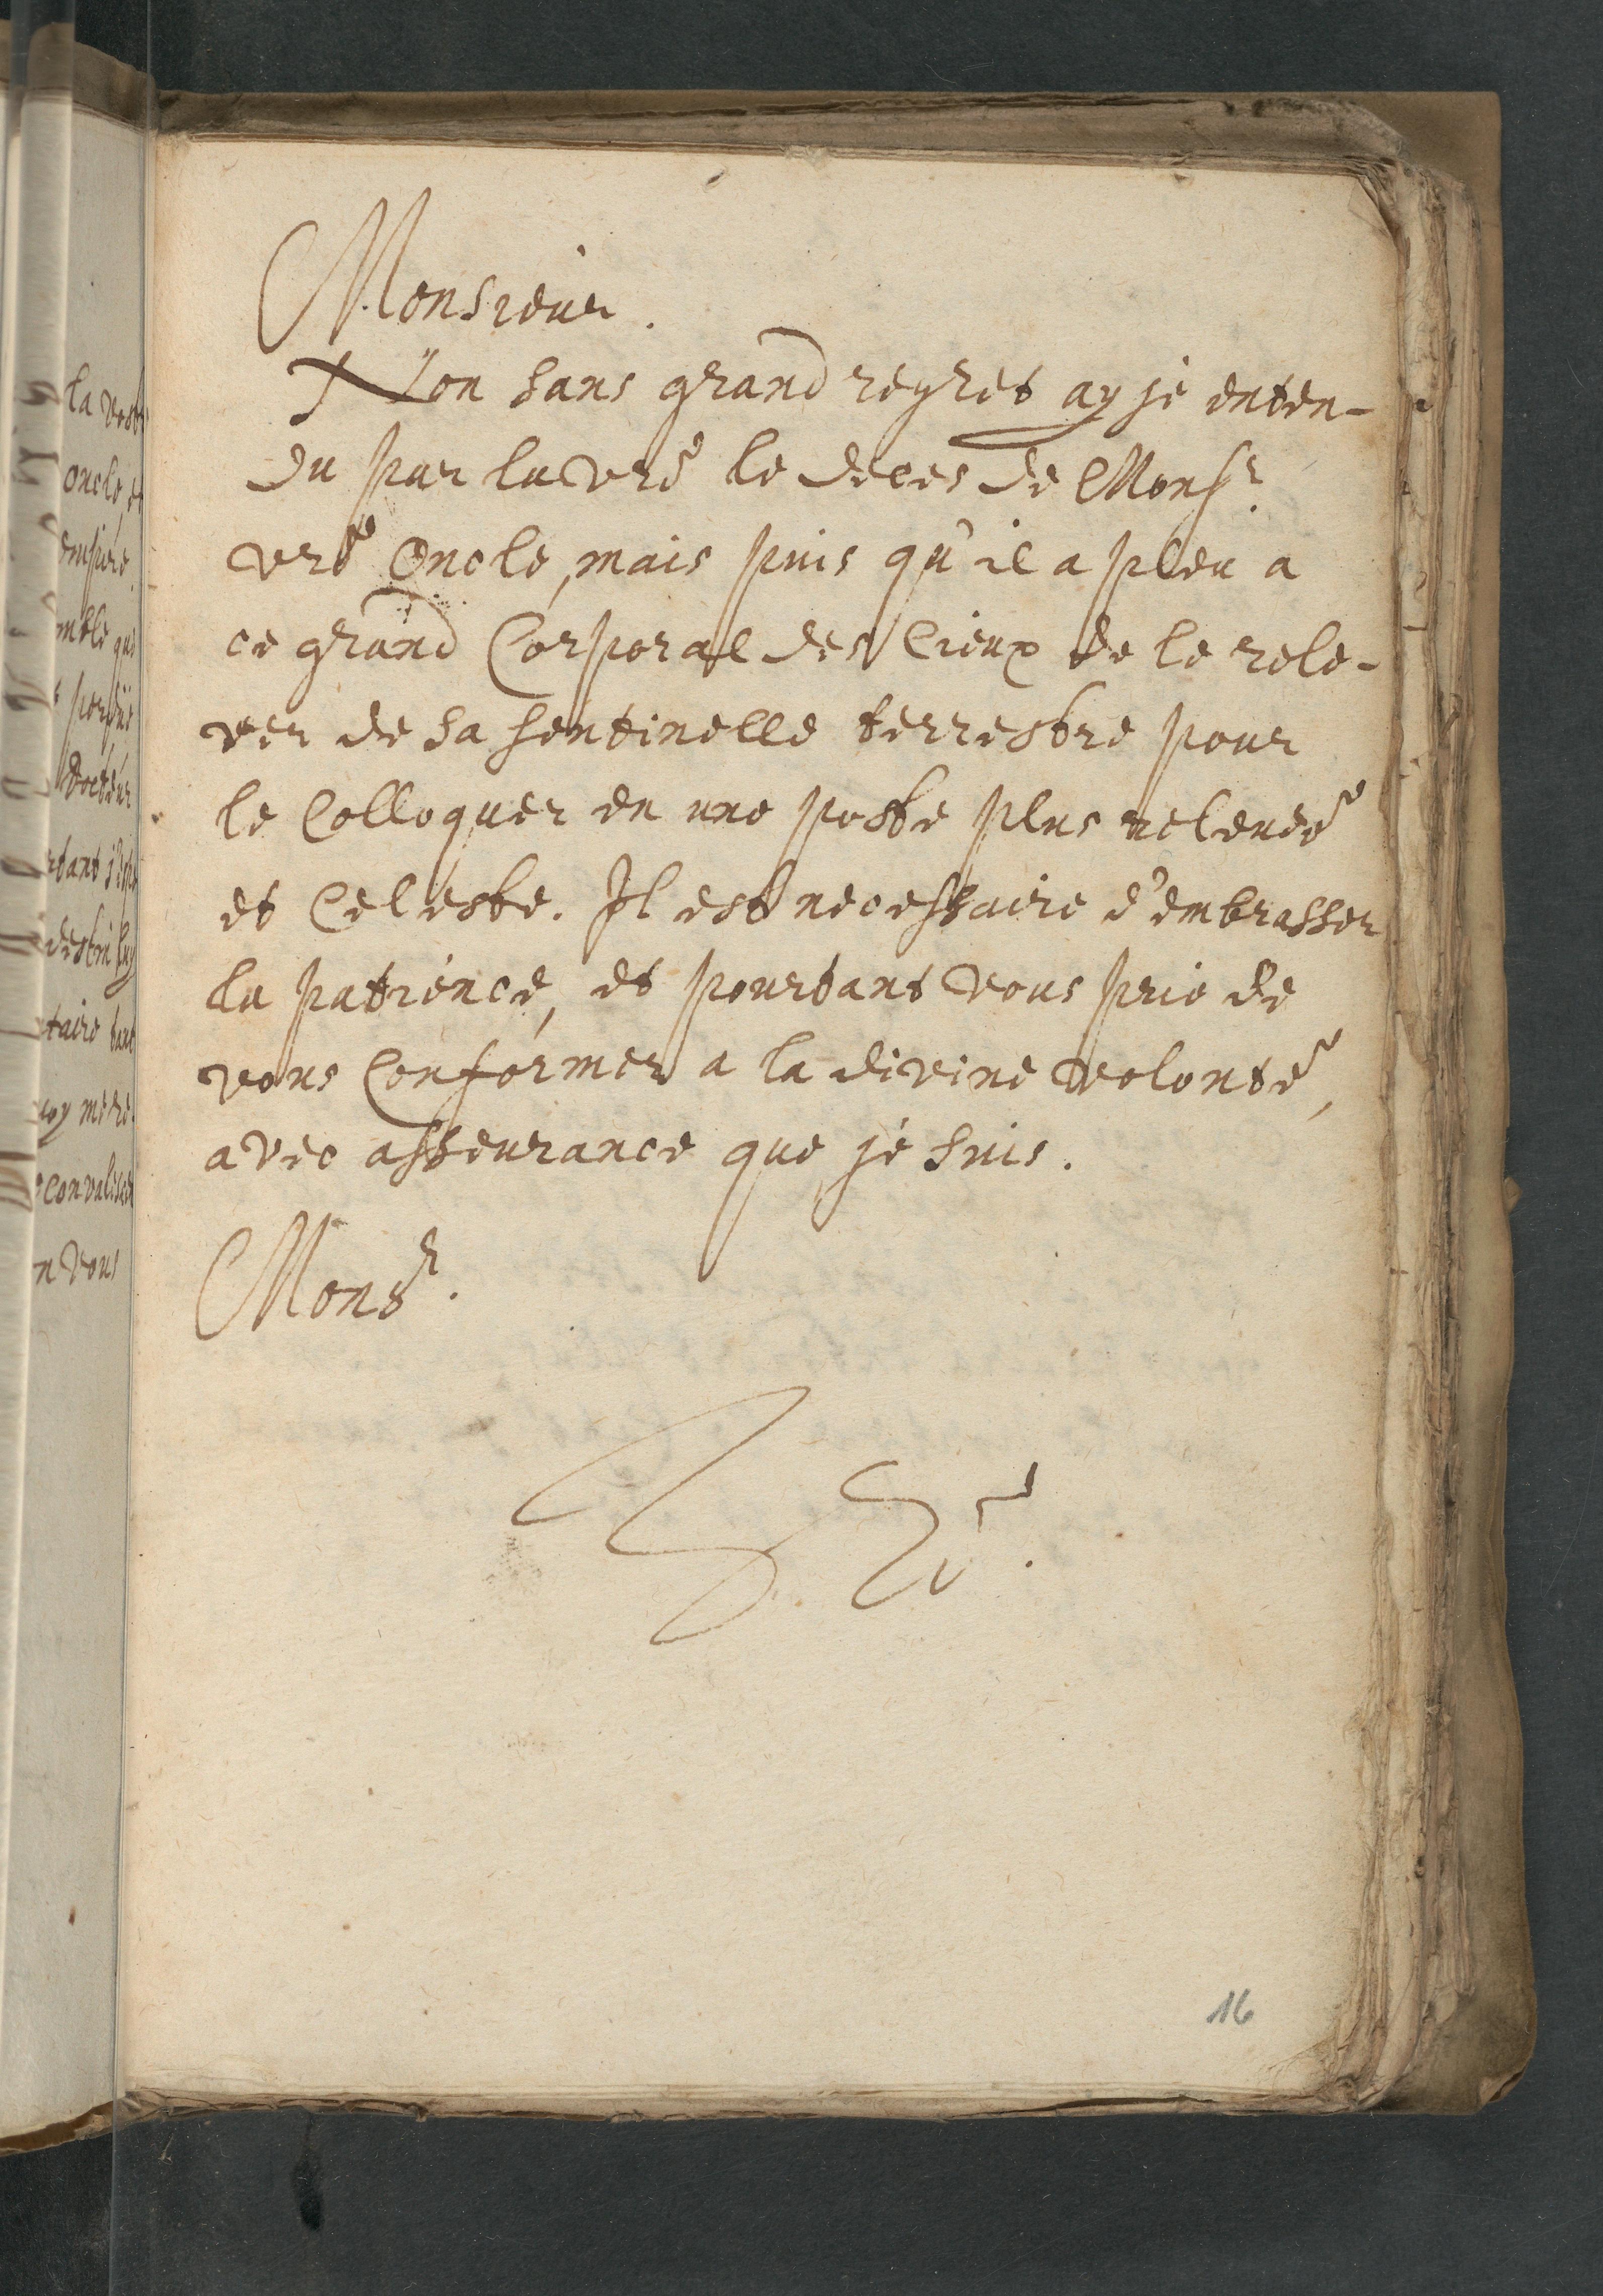 Monsieur.
Non sans grand regret ay je enten-
du par la vre le deces de Monsr.
vre Oncle, mais puis qu'il a pleu a
ce grand Corporal des Cieux de le rele-
ver de sa sentinelle terrestre pour
le Colloquer en une poste plus relevee
et Celeste. Il est necessaire d'embrasser
la patience, et pourtant vous prie de
vous Conformer a la divine volonté,
avec asseurance que je suis.
Monsr.
16
la vost
oncle, et
Docteur
taire tant
n vous